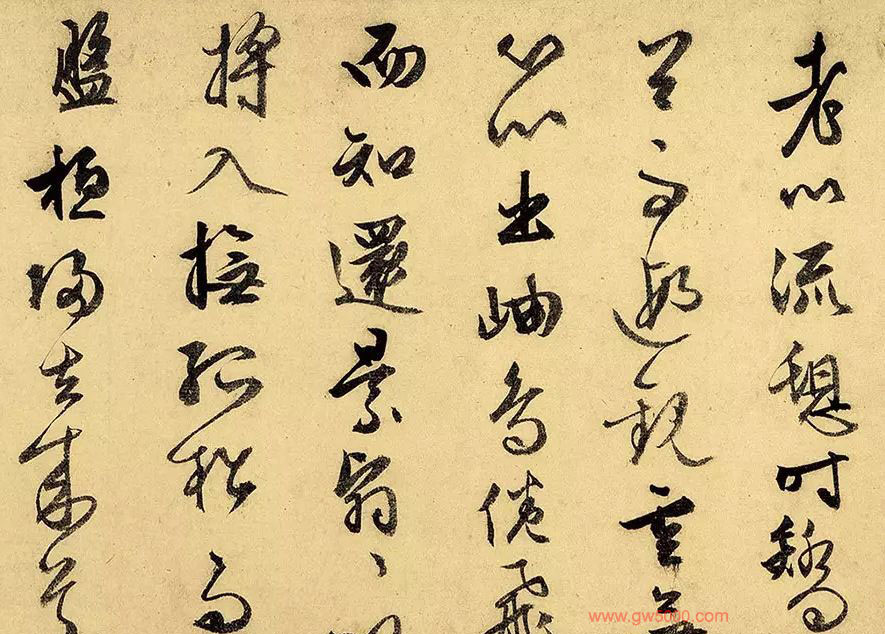 老以流憩時矯
首而遐觀雲無
心以出岫鳥倦飛
而知還景翳〻以
將入撫孤松而
盤桓歸去來兮
www.gw5000.com